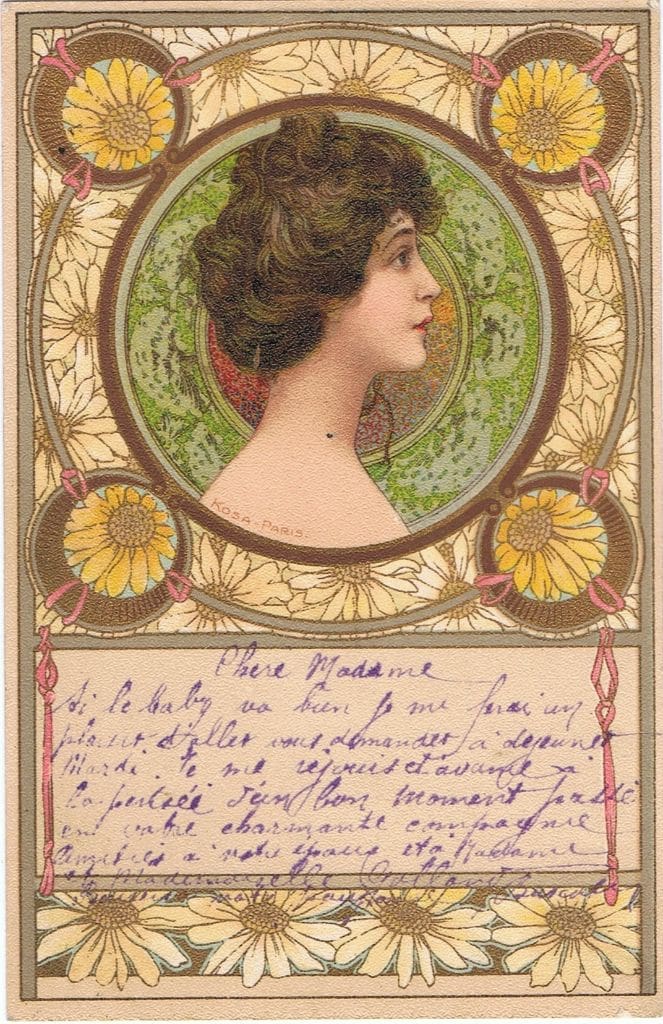 KOSA-PARIS.
Chere Madame
Si le baby va bien je me ferai un
plaisir d'aller vous demander à dejeuner
Mardi. Je me rejouis d'avance à
la pensée d'un bon moment passé
en votre charmante compagnie
Amitiés à votre epoux et à Madame
et Mademoiselle